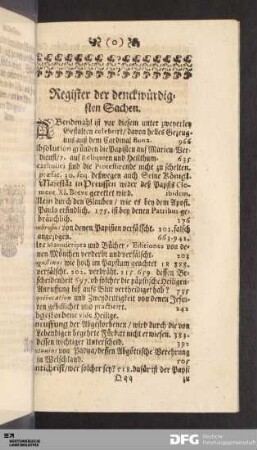 (o)
Register der denckwürdig-
sten Sachen.
ABendmahl ist vor diesem unter zweyerley
Gestalten celebrirt / davon helles Gezeug-
nus aus dem Cardinal Bona. 966
Absolution gründen die Papisten auf Marien-Ver-
dienst / auf Reliquien und Heilthum. 635
sind die Protestirende nicht zu schelten.
præfat. 30. seq. deswegen auch Seine Königl.
Majestät in Preussen wider deß Papsts Cle-
ment XI. Breve gerettet wird. ibidem.
Allein durch den Glauben / wie es bey dem Apost.
Paulo erfindlich. 175. ist bey denen Patribus ge-
bräuchlich. 176
von denen Papisten verfälscht. 202. falsch
angezogen. 661.942.
Manuscripten und Bücher Editiones von de-
nen Mönchen verderbt und verfälscht. 202
wie hoch im Papstum geachtet
verfälscht. 202. verdräht. 217. 659. dessen Be-
scheidenheit 697. ob solcher die päpstische Heiligen-
Anruffung biß aufs Blut vertheidiget hab? 735
und Zweydeutigkeit von denen Jesui-
ten gebillichet und practicirt. 242
vide Heilige.
Anruffung der Abgestorbenen / wird durch die von
Lebendigen begehrte Fürbitt nicht erwiesen. 383.
dessen wichtiger Unterscheid. 392
von Padua / dessen Abgötische Verehrung
in Welschland. 505
Antichrist / wer solcher sey? 218. dafür ist der Papst
Qqq zu
SLUB
DRESDEN
DFG Deutsche
Forschungsgemeinschaft